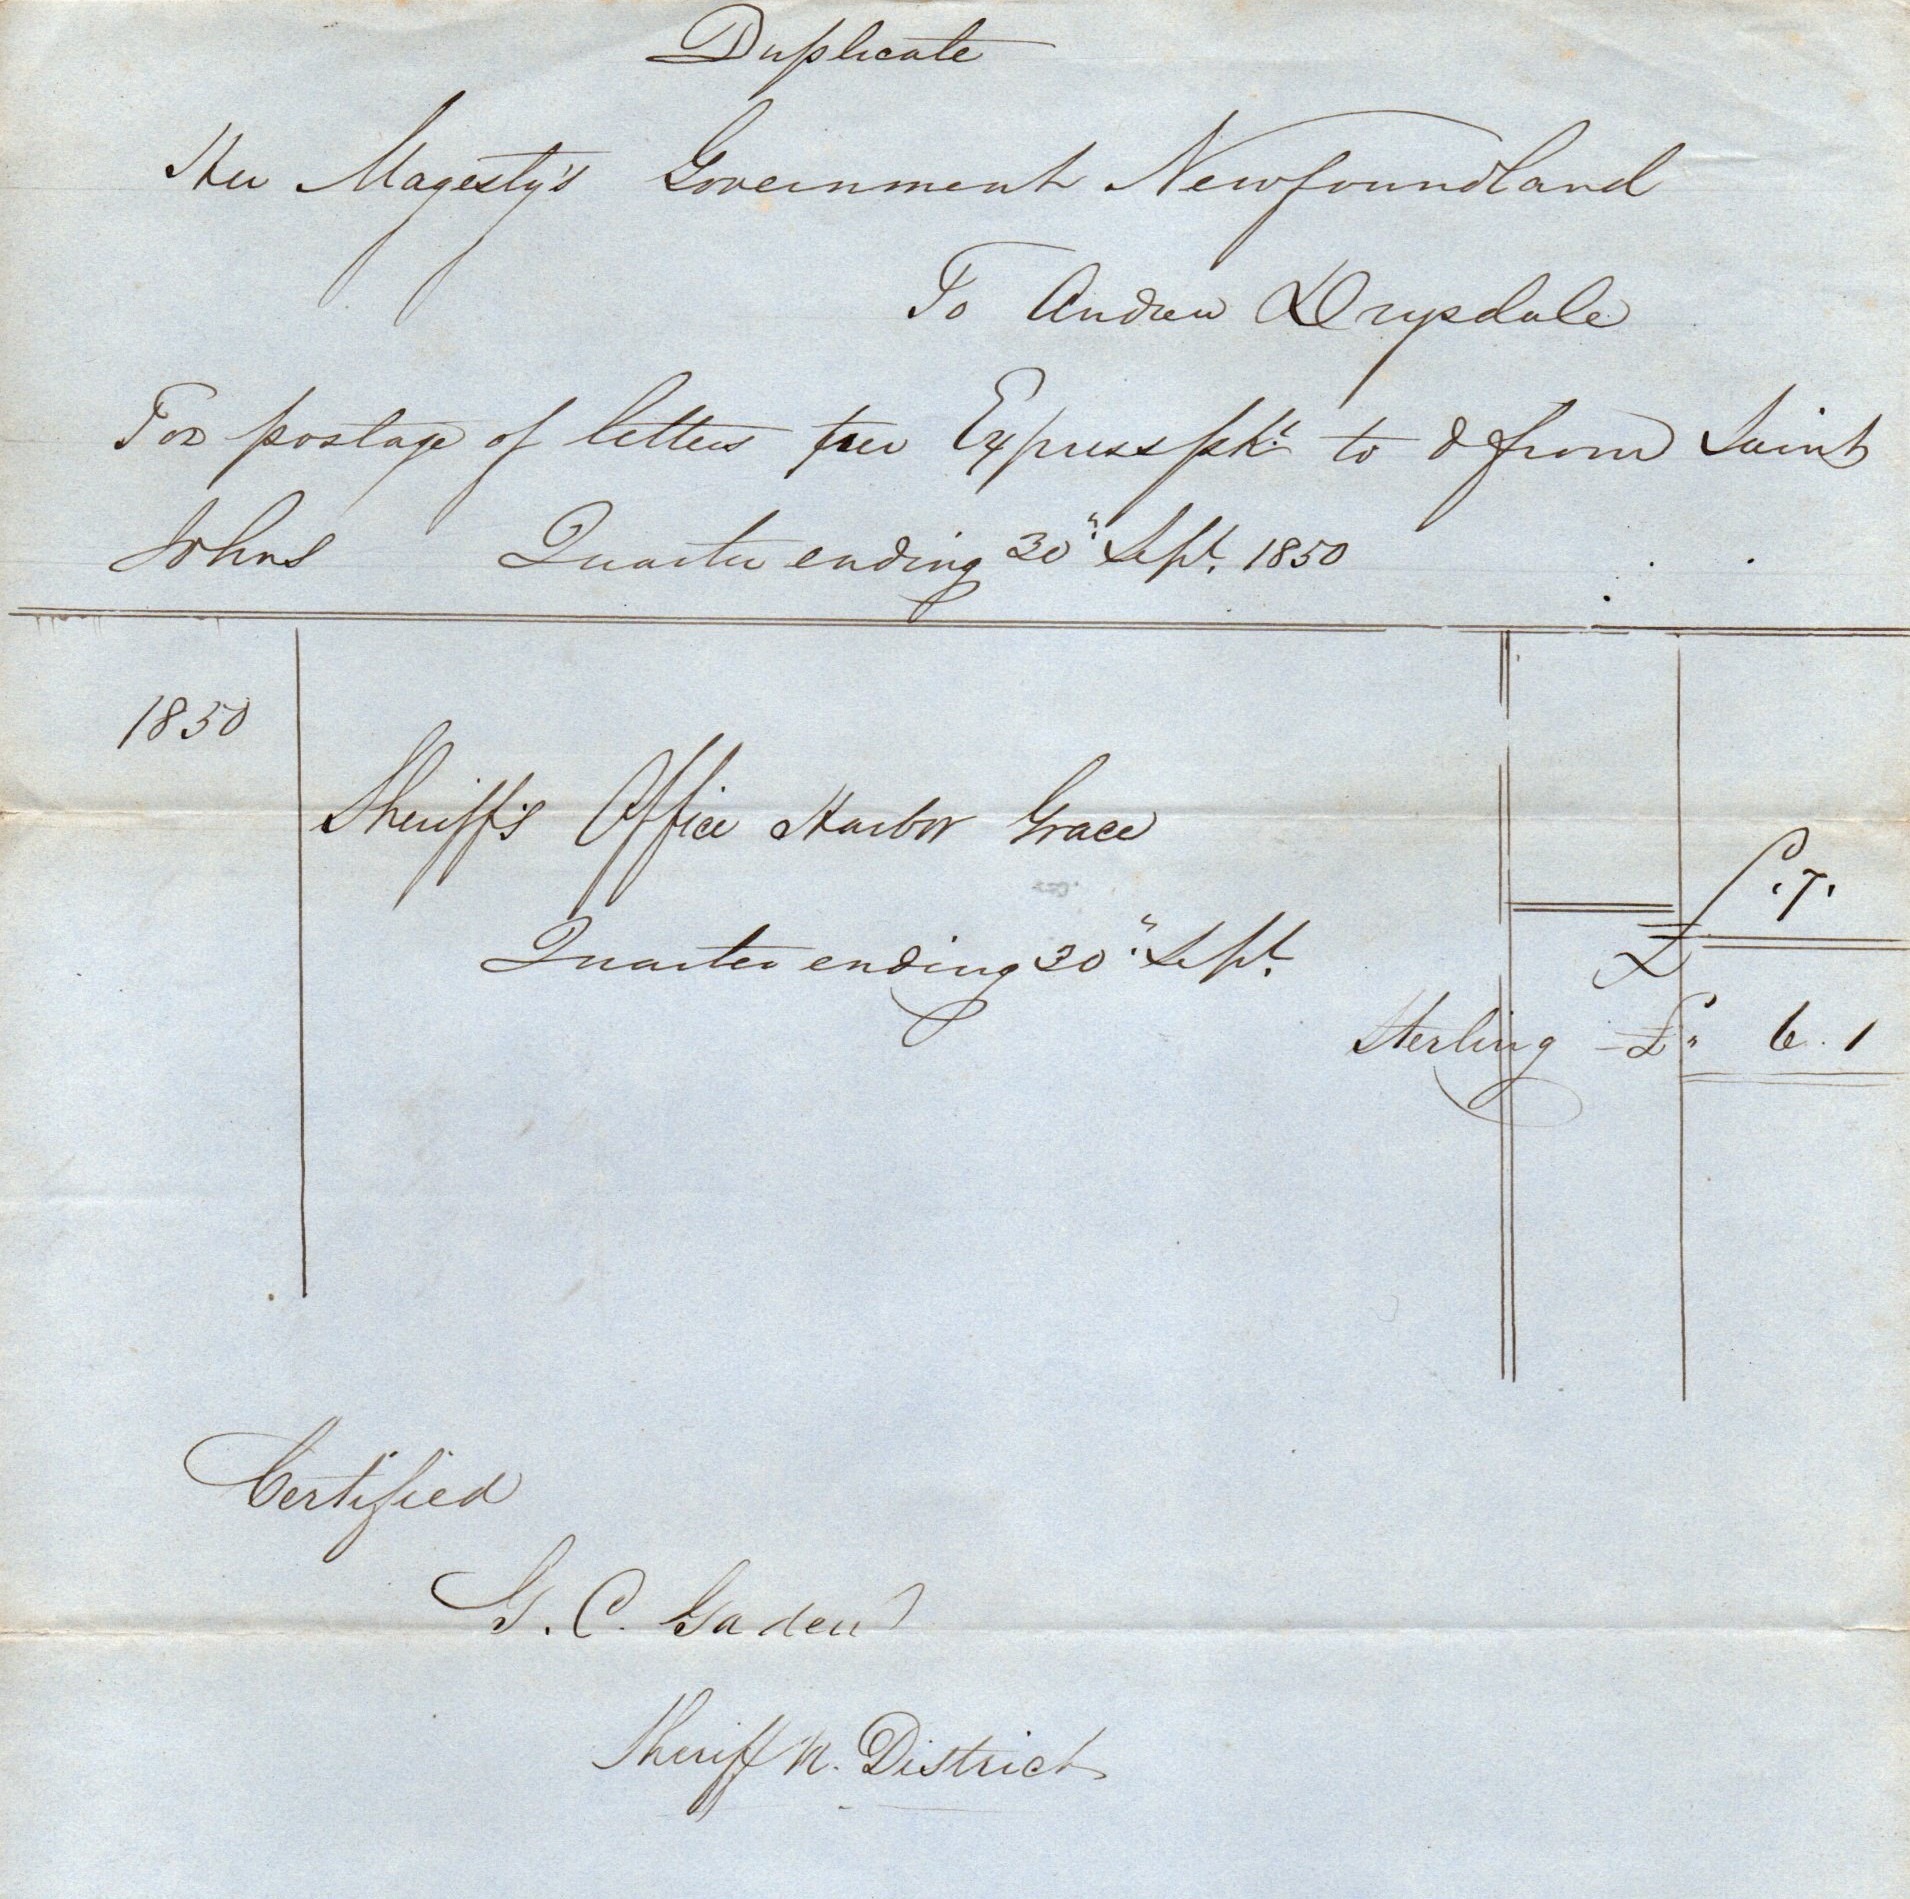 Duplicate
Her Magesty's Government Newfoundland
To Andrew Drysdale
For postage of letters per Express pkt. to & from Saint
Johns Quarter ending 30" Sept. 1850
1850
Sheriff's Office Harbor Grace
.7.
Quarter ending 30" Sept.
£
Sterling £" 6.1
Certified
G. C. Gaden
Sheriff N. District